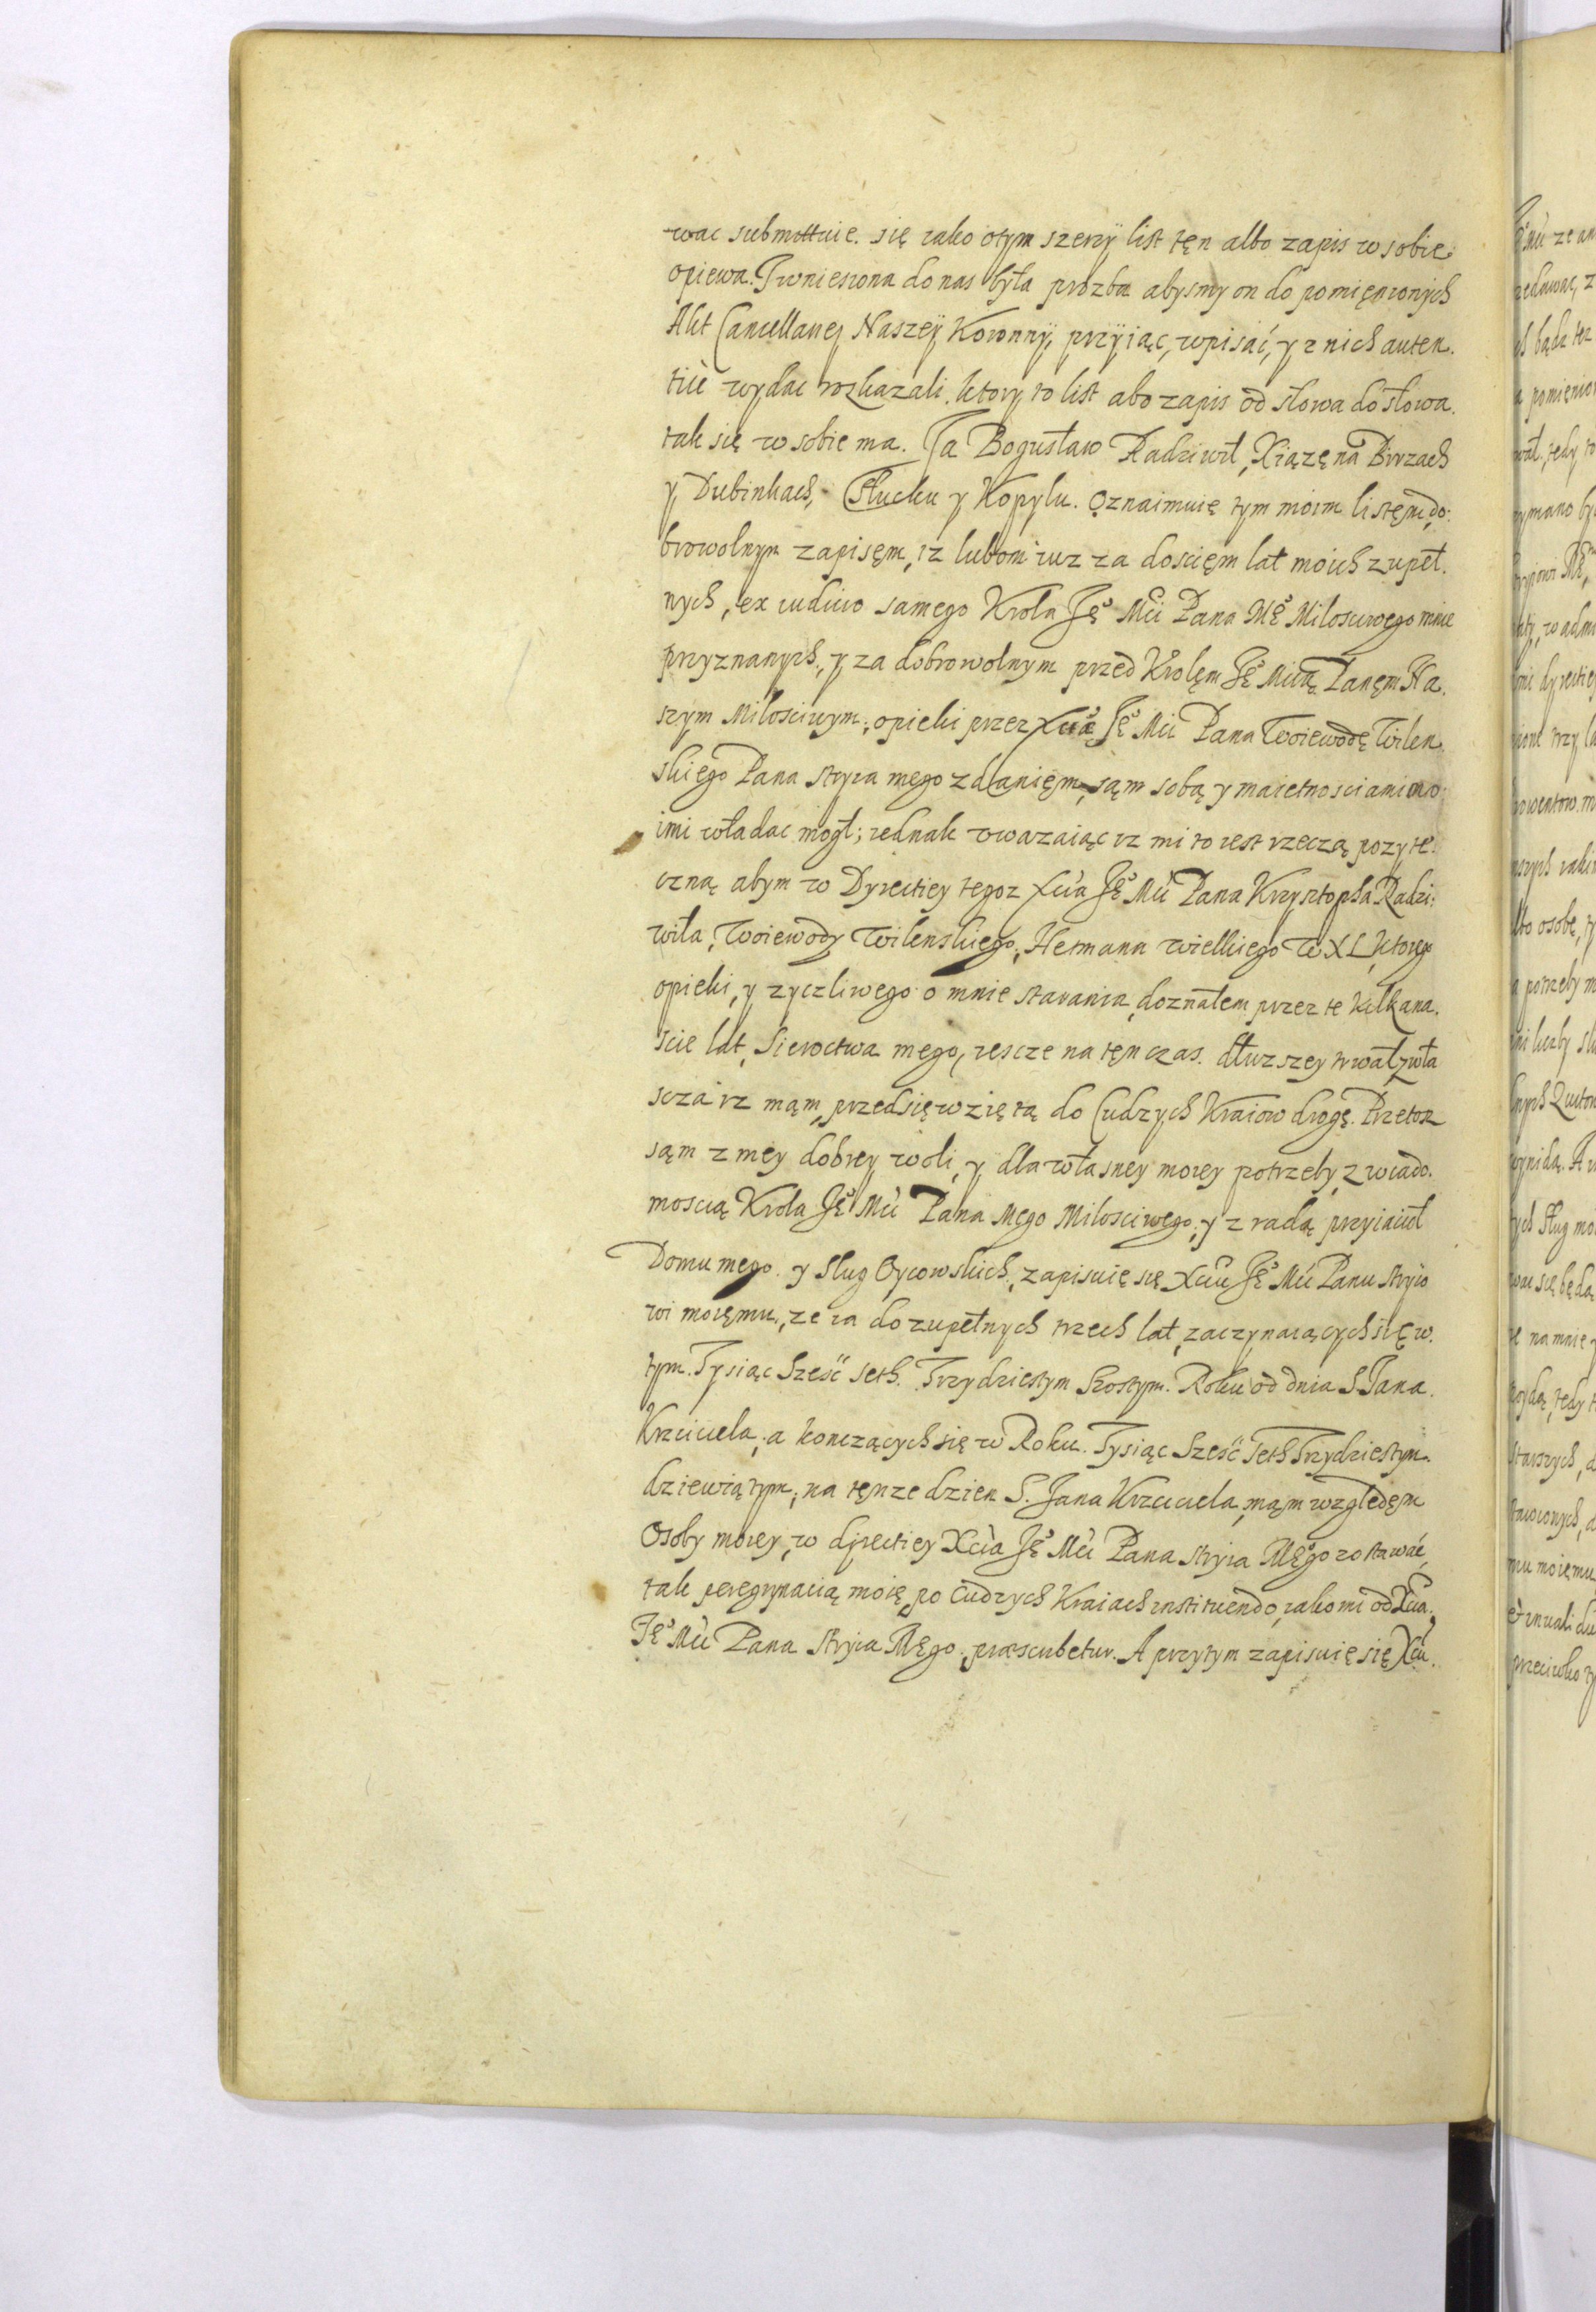 wac submittuie. się iako otym szerzÿ list tęn albo zapis w sobie
opiewa. I wniesiona do nas była prozba abysmy on do pomięnionych
Akt Cancellaryey Naszeÿ Koronnÿ, przÿiąc, wpisać, y z nich auten.
tice wydac rozkazali. ktory to list abo zapis od słowa do słowa.
tak się w sobie ma. Ja Bogusław Radziwił, Xiązę na Birzach
y Dubinkach, Słucku y Kopylu. Oznaimuię tym moim listęm, do:
browolnym zapisęm, iz lubom iuz za doscięm lat moich zupeł.
nych, ex iudicio samego Krola Ję° Mći Pana Mę° Milosciwego mnie
przyznanych, y za dobrowolnym przed Krolęm Ję° Mćią Panęm Na.
szym Milosciwym, opieki przez Xćia Ję° Mći Pana Woiewodę Wilen
skiego Pana stryia mego zdanięm, sąm sobą y maietnosciami mo
imi władac mogł; iednak uwazaiąc iz mi to iest rzeczą pozyte.
czną abym w Dyrectiey tegoz Xćia Ję° Mći Pana Krzysztopha Radzi:
wiła, Woiewody Wilenskiego, Hetmana wielkiego W X L, ktorego
opieki, y zyczliwego o mnie starania, doznałem przez te kilkana.
scie lat, Sieroctwa mego, iescze na tęn czas. dłuzszey trwał, zwła
scza iz mąm, przedsięwziętą do Cudzych Kraiow drogę. Przetoz
sąm z mey dobrey woli, y dla własney moiey potrzeby, z wiado.
moscią Krola Ję° Mći Pana Mego Milosciwego, y z radą przyiaciół
Domu mego. y Sług Oycowskich, zapisuię się Xciu Ję° Mći Panu stryio
wi moięmu, ze ia do zupełnych trzech lat, zaczynaiących się w.
tym. Tysiąc Sześć seth. Trzydziestym Szostym. Roku od dnia S Jana.
Krzciciela, a konczących się w Roku. Tysiąc Sześć Seth Trzydziestym.
dziewiątym, na tęnze dzien S. Jana Krzciciela, mąm względęm
Osoby moiey, w dÿrectiey Xćia Ję° Mći Pana stryia Mego zostawać,
tak peregrynacią moię, po cudzych Kraiach instituendo, iako mi od Xćia.
Ję° Mći Pana stryia Mego. præscribetur. A przytym zapisuię się Xću.